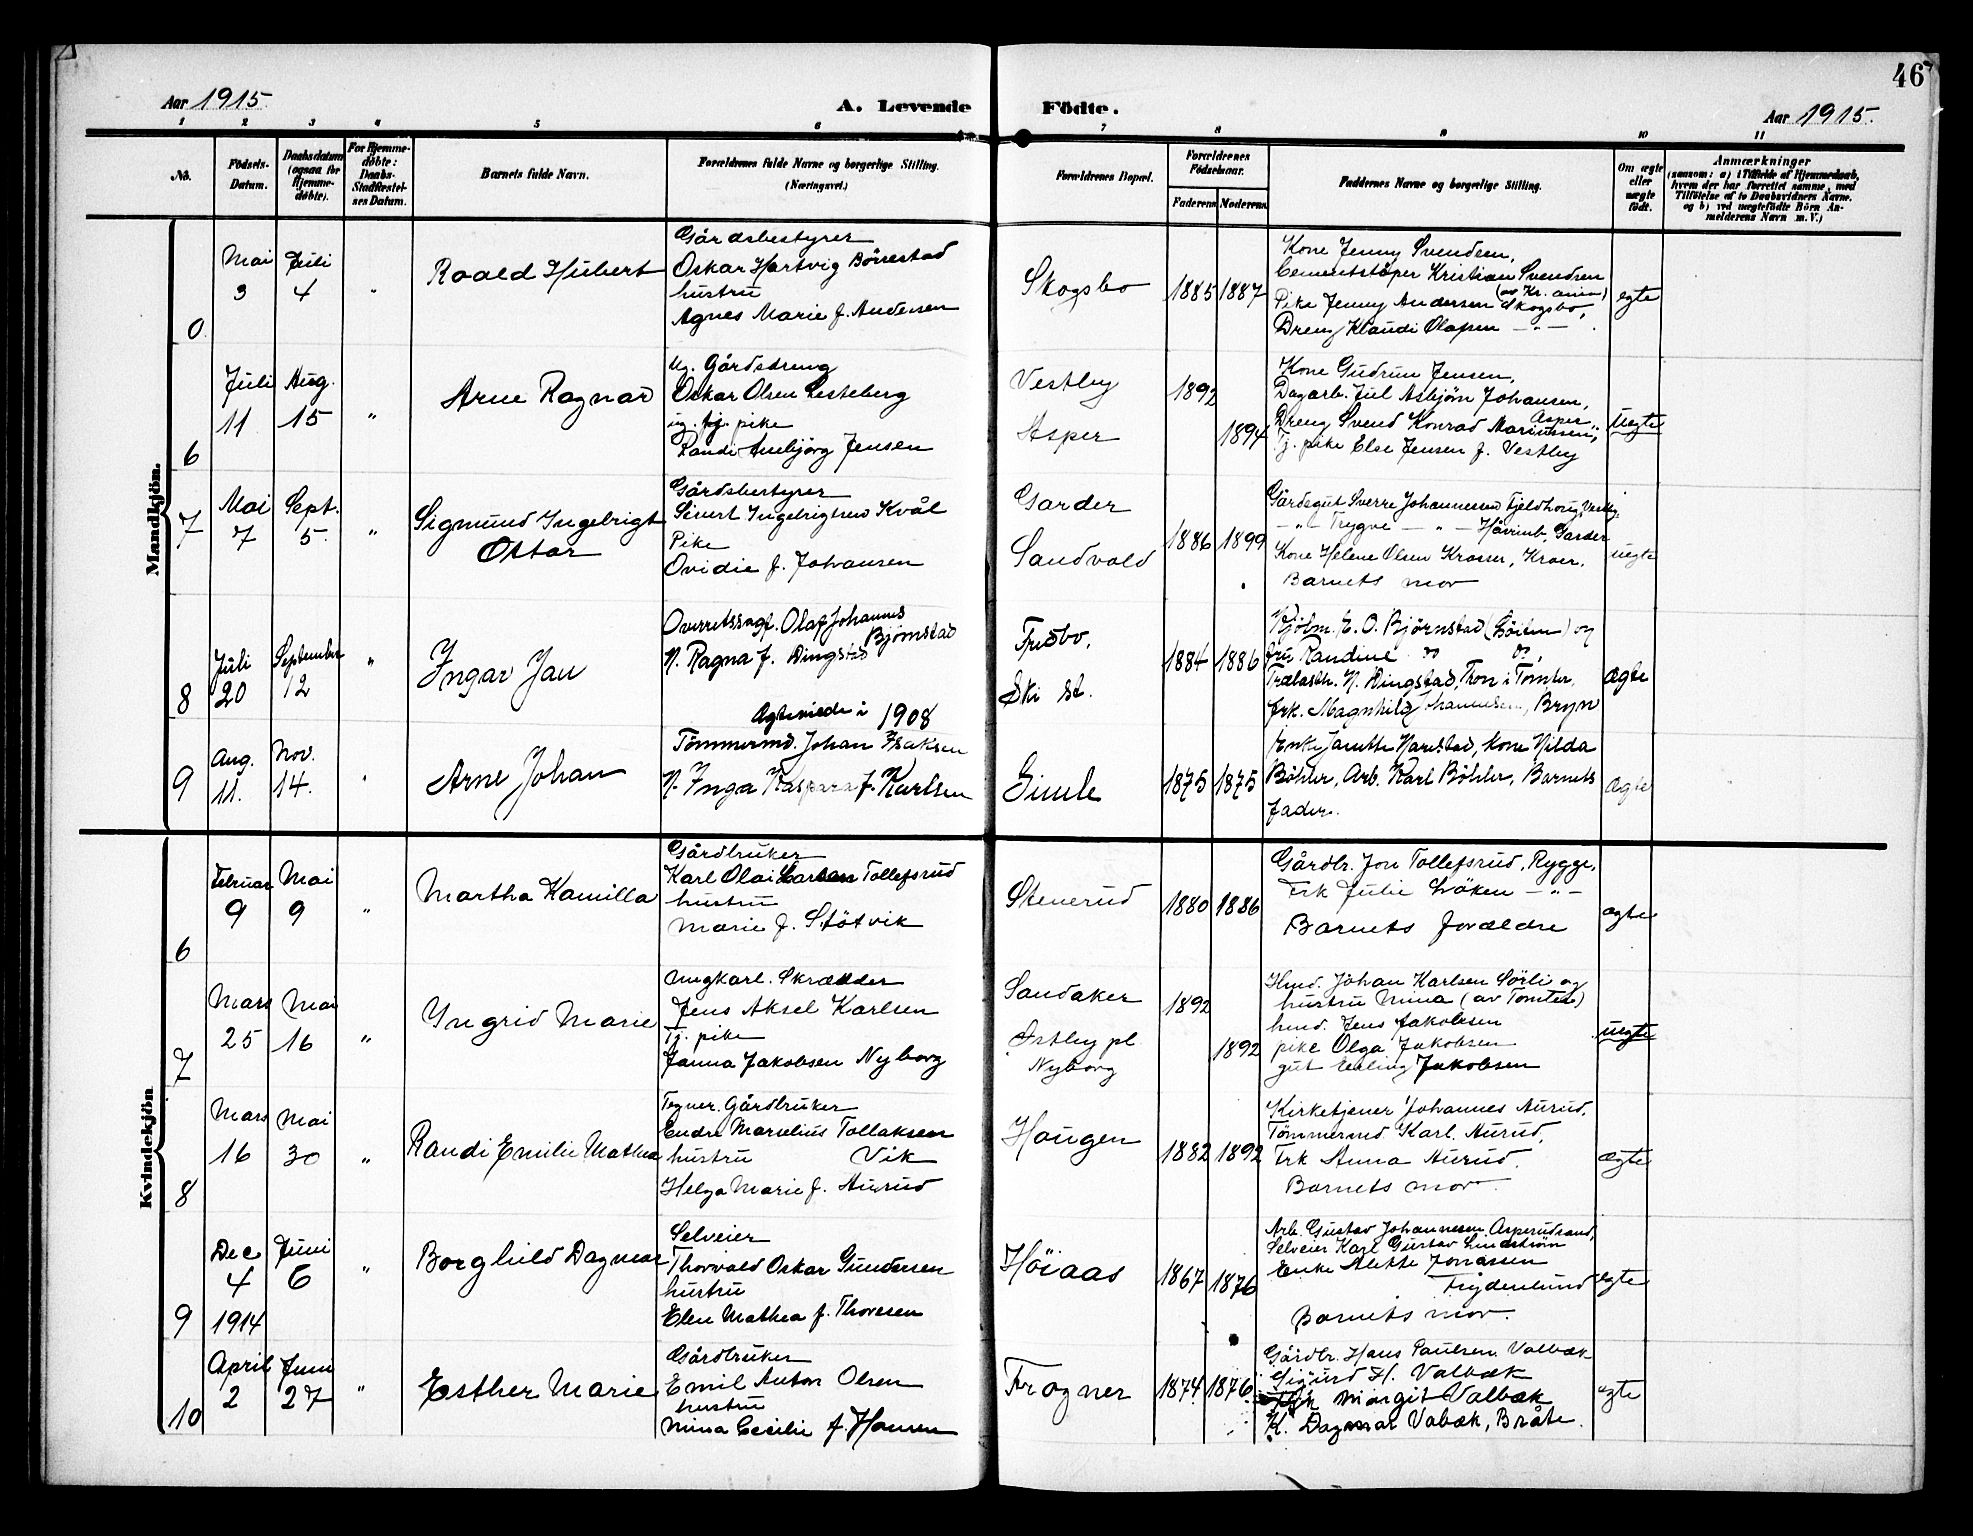 46
Aar 1915.
A. Levende Födte.
Aar 1915.
1 2 3 4 5 6 7 8 9 10 11
No.
Födsels-Datum.
Daabsdatum (ogsaa for Hjemme-döbte).
For Hjemme-döbte: Daabs-Stadfæstel-ses Datum.
Barnets fulde Navn.
Forældrenes fulde Navne og borgerlige Stilling. (Næringsvei.)
Forældrenes Bopæl.
Forældrenes Födselsaar.
Faderens Moderens
Faddernes Navne og borgerlige Stilling.
Om ægte eller uægte födt.
Anmærkninger
(saasom: a) i Tilfælde af Hjemmedaab, hvem der har forrettet samme, med Tilföielse af to Daabsvidners Navne, og b) ved uægtefödte Börn Anmelderens Navn m. V.)
Mandkjön.
0
Mai 3
Juli 4
"
Roald Hubert
Gårdsbestyrer
Oskar Hartvig Börrestad
hustru
Agnes Marie f. Andersen
Skogsbo
1885 1887
Kone Jenny Svendsen,
Cementstöper Kristian Svendsen
Pike Jenny Andersen Skogsbo,
Dreng Klaudi Olafsen — " —
egte
6
Juli 11
Aug. 15
"
Arne Ragnar
Ug. Gårdsdreng
Oskar Olsen Lesteberg
ug. tj. pike
Randi Annbjörg Jensen
Vestby
Asper
1892
1894
Kone Gudrun Jensen,
Dagarb. Juel Asbjön Johansen,
Dreng Svend Konrad Mariussen, Asper
Tj. pike Else Jensen f. Vestby
uegte
7
Mai 7
Sept. 5.
"
Sigmund Ingebrigt
Ottar
Gårdsbestyrer
Sivert Ingebrigtsen Kvål
Pike
Ovidie f. Johansen
Garder
Sandvold
1886 1899
Gårdsgut Sverre Johannessen Fjeldhoug, Vestby
— " — Trygve — " — Garder
Kone Helene Olsen Kroer, Kroer.
Barnets mor
uegte
8
Juli 20
September 12
"
Ingar Jan
Overretssagf. Olaf Johannes
Bjørnstad
H. Ragna f. Ringstad
Ægteviede i 1908
Fredbo,
Ski st.
1884 1886
Kjöbm. E. O. Björnstad og
fru Randine " ",
Trælasth. N. Ringstad, Tomter,
frk. Magnhild Johannesen, Bryn
Ægte
9
Aug. 11.
Nov. 14.
Arne Johan
Tömmermd. Johan Isaksen
H. Inga Kaspara f. Karlsen
Gimle
1875 1875
Enke Janette Narestad, Kone Hilda
Böhler, Arb. Karl Böhler, Barnets
fader.
Ægte
Kvindekjön
6
Februar 9
Mai 9
"
Martha Kamilla
Gårdbruker
Karl Olai Tollefsrud
hustru
Marie f. Stötvik
Stenerud
1880 1886
Gårdbr. Jon Tollefsrud, Rygge,
Frk Julie Löken — " —
Barnets forældre
ægte
7
Mars 25
Mai 16
"
Yngrid Marie
Ungkarl. Skrædder
Jens Aksel Karlsen
Tj. pike
Janna Jakobsen Nyborg
Sandaker
Østby pl.
Nyborg
1892
1892
Hmd. Johan Karlsen Sörli og
hustru Mina (av Tomter)
hmd. Jens Jakobsen
pike Olga Jakobsen
gut Erling Jakobsen
uegte
8
Mars 16
Mai 30
"
Randi Emilie Mathea
Tegner. Gårdbruker
Endre Marselius Tollaksen
hustru Vik
Helga Marie f. Aurud
Haugen
1882 1892
Kirketjener Johannes Aurud,
Tömmermd Karl. Aurud,
Frk Anna Aurud.
Barnets mor
ægte
9
Dec 4
1914
Juni 6
"
Borghild Dagmar
Selveier
Thorvald Oskar Gundersen
hustru
Elen Mathea f. Thoresen
Höiaas
1867 1876
Arb. Gustav Johannesen Asperudsand,
Selveier Karl Gustav Lindström
Enke Alette Jonassen
Frydenlund
Barnets mor.
egte
10
April 2
Juni 27
"
Esther Marie
Gårdbruker
Emil Anton Olsen
hustru
Mina Cecilie f. Hansen
Frogner
1874 1876
Gårdbr. Hans Paulsen Valbæk
Sigurd H. Valbæk
Margit Valbæk
K. Dagmar Vabæk, Bråte.
egte